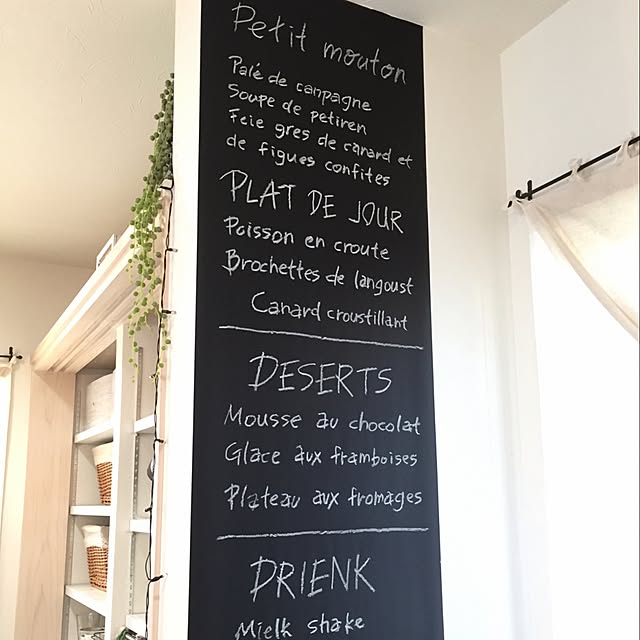 Petit mouton
Palé de canpagne
Soupe de petiren
Feie gres de canard et
de figues confites
PLAT DE JOUR
Poisson en croute
Brochettes de langoust
Canard croustillant
DESERTS
Mousse au chocolat
Glace aux framboises
Plateau aux fromages
DRIENK
Mielk shake